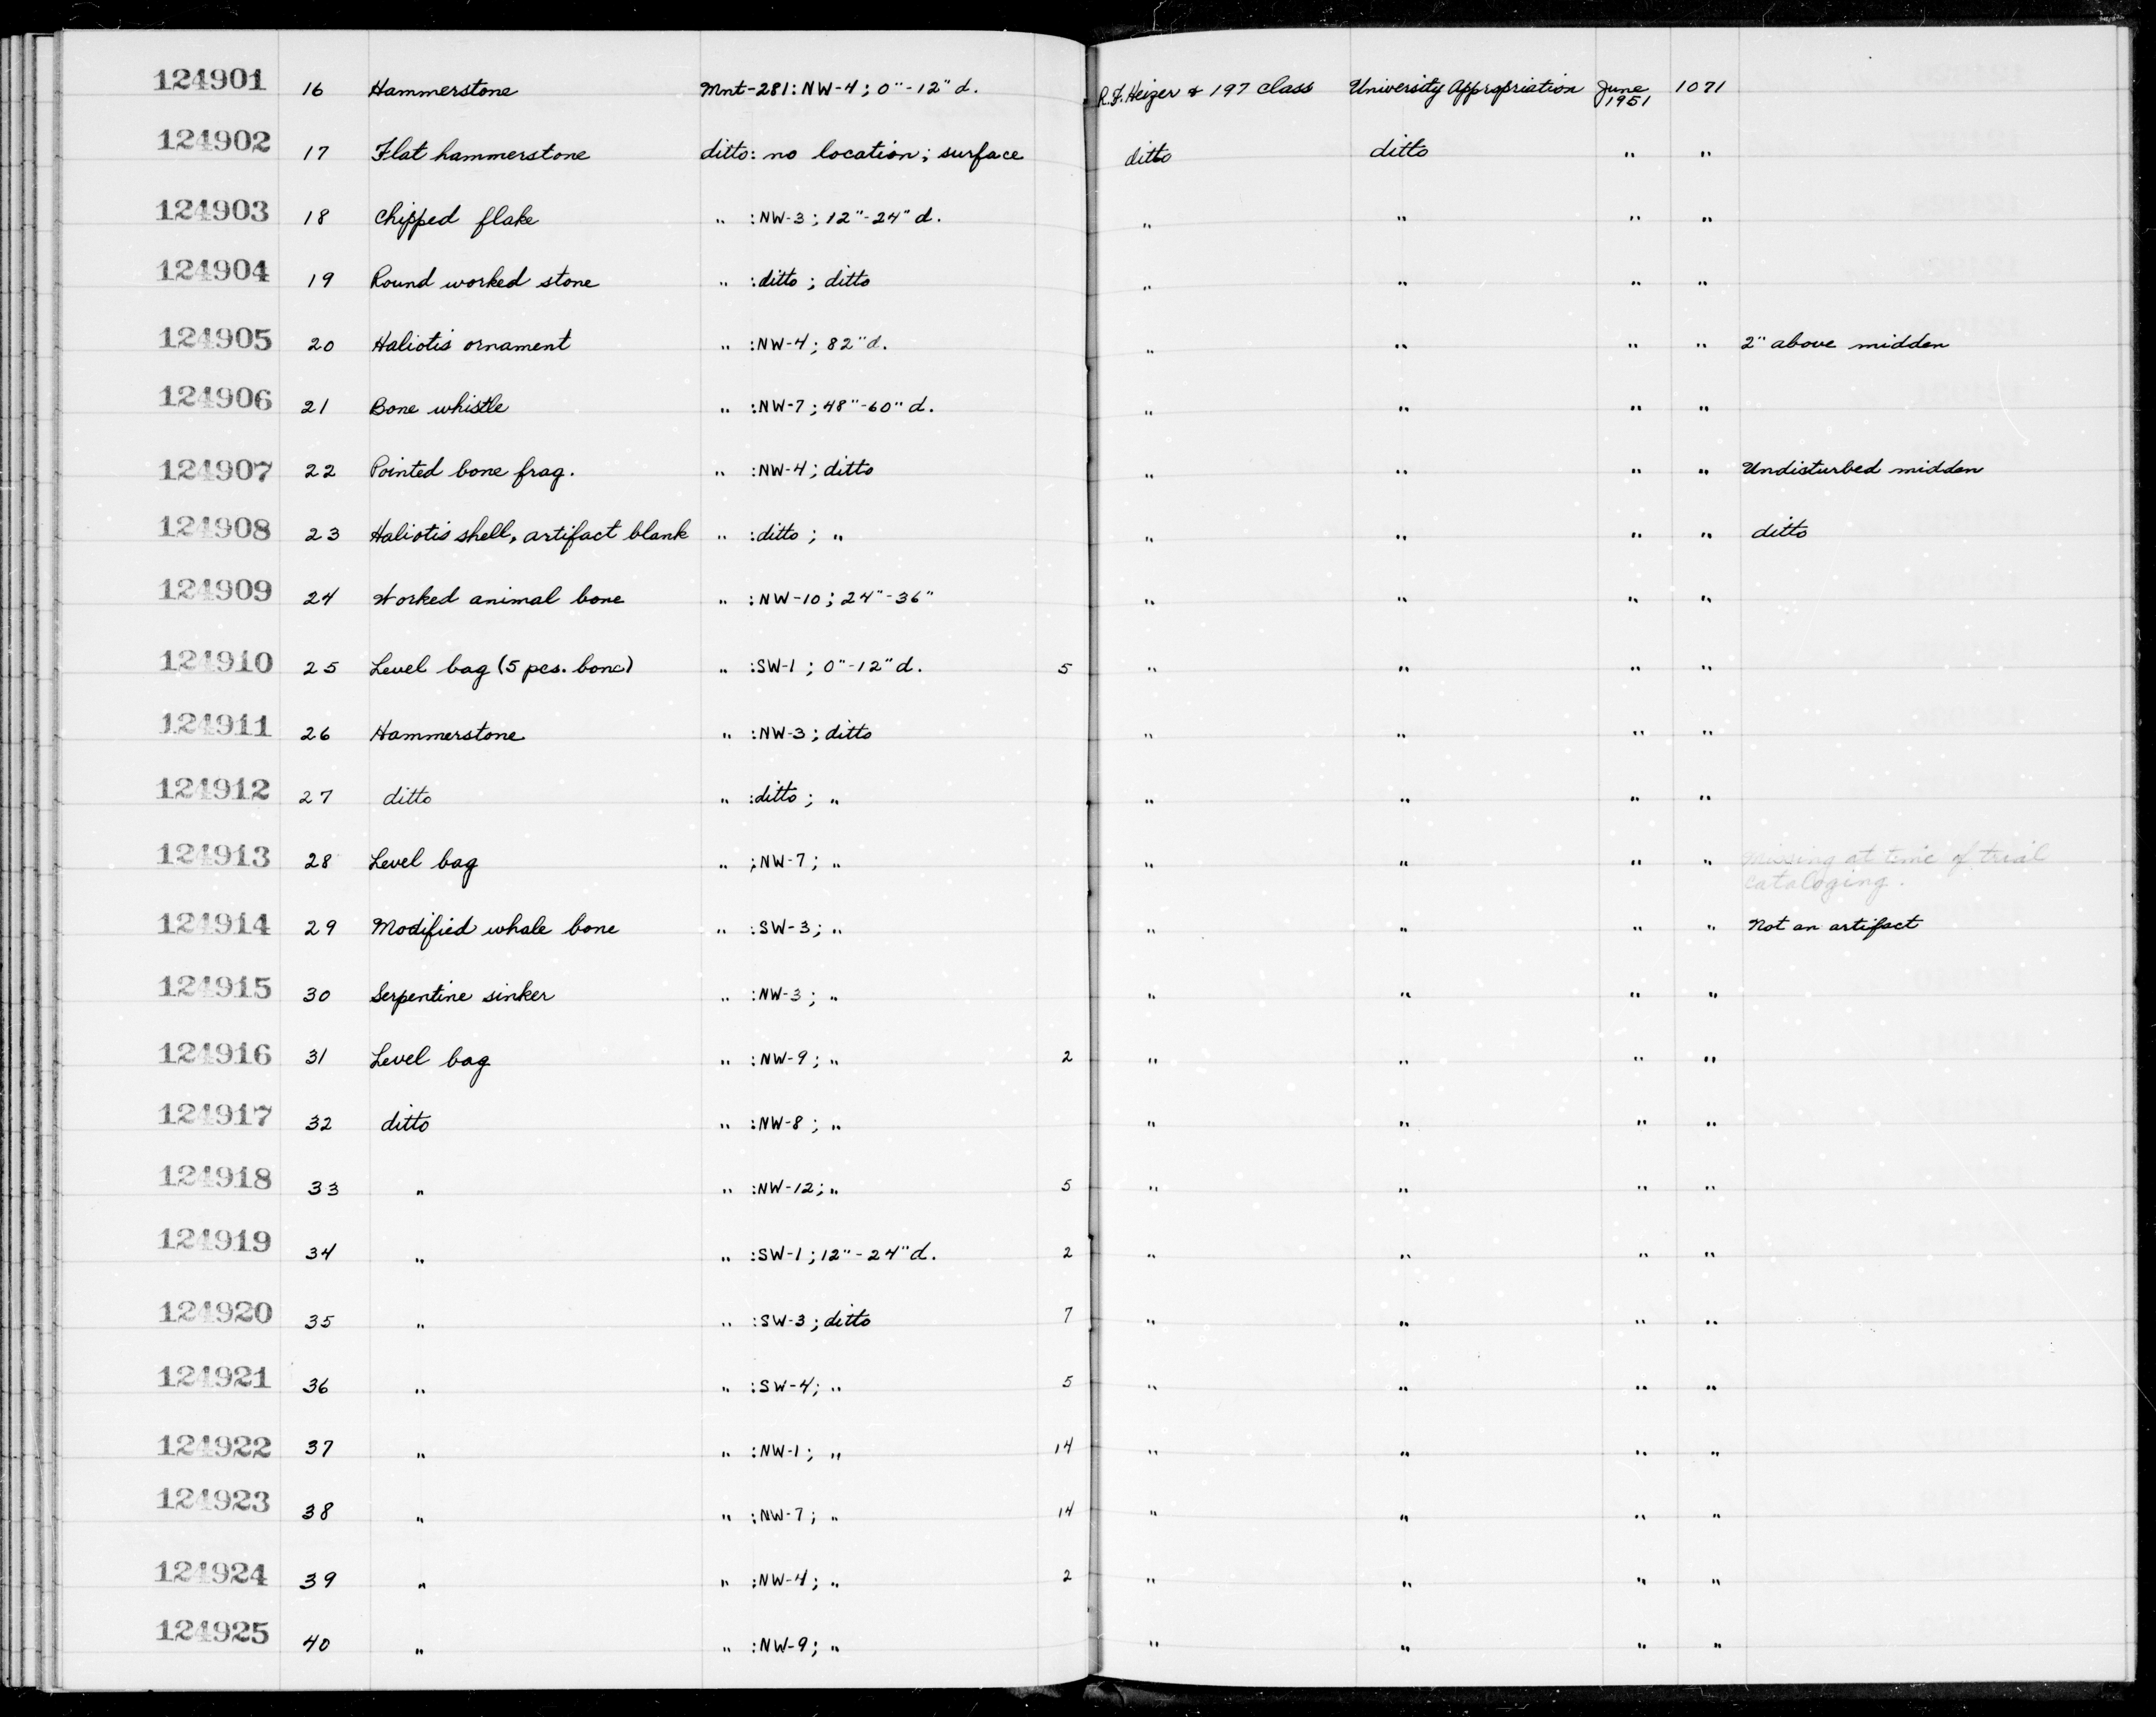 124901 16 Hammerstone Mnt-281: NW-4; 0"-12" d. R.F. Heizer & 197 class University Appropriation June 1951 1071
124902 17 Flat hammerstone ditto: no location; surface ditto ditto " "
124903 18 Chipped flake " : NW-3; 12"-24" d. " " " "
124904 19 Round worked stone " : ditto; ditto " " " "
124905 20 Haliotis ornament " : NW-4; 82" d. " " " " 2" above midden
124906 21 Bone whistle " : NW-7; 48"-60" d. " " " "
124907 22 Pointed bone frag. " : NW-4; ditto " " " " Undisturbed midden
124908 23 Haliotis shell, artifact blank " : ditto; " " " " " ditto
124909 24 Worked animal bone " : NW-10; 24"-36" " " " "
124910 25 Level bag (5 pcs. bone) " : SW-1; 0"-12" d. 5 " " " "
124911 26 Hammerstone " : NW-3; ditto " " " "
124912 27 ditto " : ditto; " " " " "
124913 28 Level bag " ; NW-7; " " " " " Missing at time of trial
cataloging.
124914 29 Modified whale bone " : SW-3; " " " " " Not an artifact
124915 30 Serpentine sinker " : NW-3; " " " " "
124916 31 Level bag " : NW-9; " 2 " " " "
124917 32 ditto " : NW-8; " " " " "
124918 33 " " : NW-12; " 5 " " " "
124919 34 " " : SW-1; 12"-24" d. 2 " " " "
124920 35 " " : SW-3; ditto 7 " " " "
124921 36 " " : SW-4; " 5 " " " "
124922 37 " " : NW-1; " 14 " " " "
124923 38 " " ; NW-7; " 14 " " " "
124924 39 " " ; NW-4; " 2 " " " "
124925 40 " " : NW-9; " " " " "